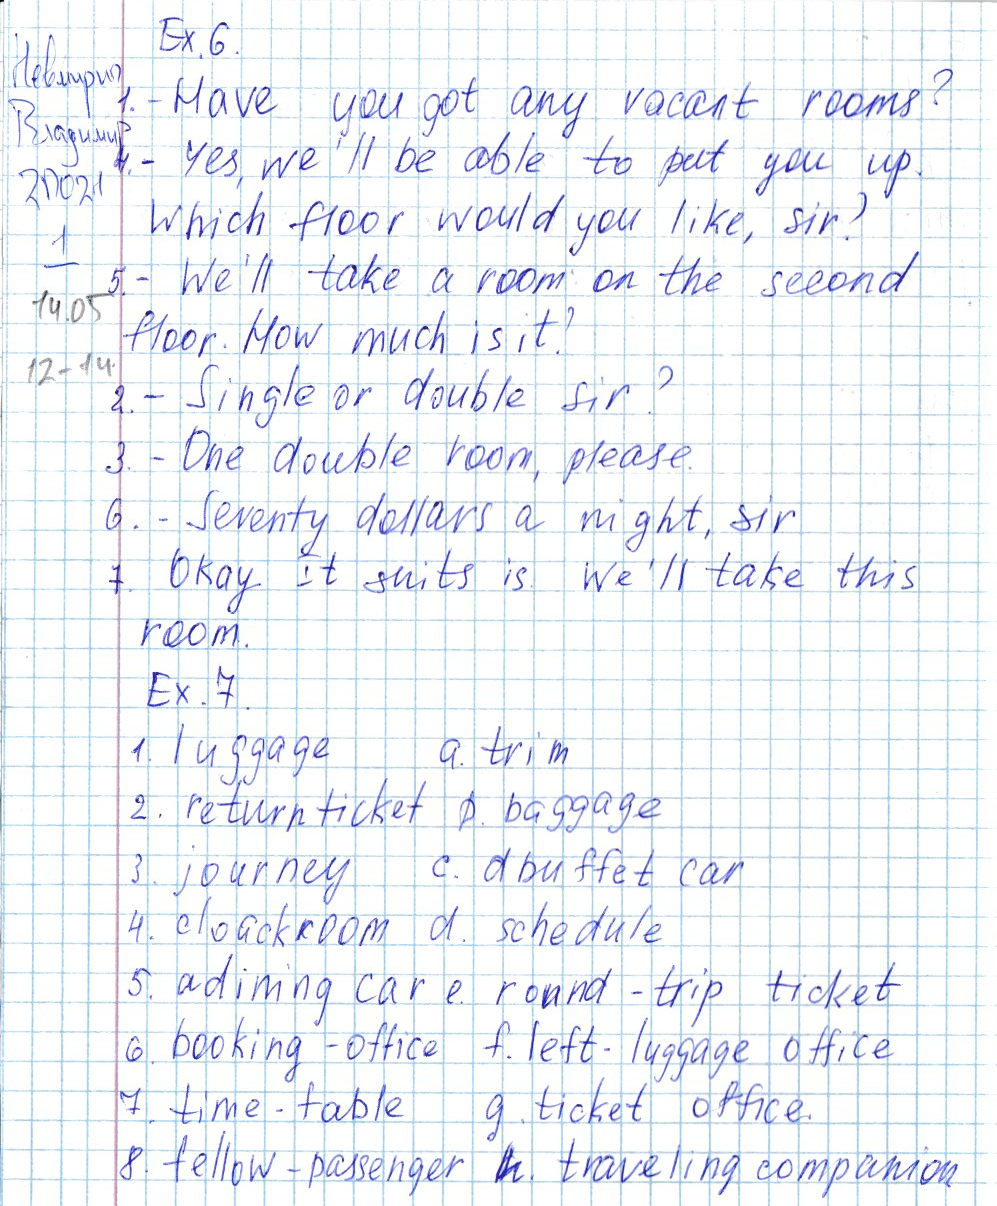 Ex.6.
Владимир
21021
1
14.05
12-14.
1. - Have you got any vacant rooms?
4. - Yes, we'll be able to put you up.
Which floor would you like, sir?
5. - We'll take a room on the second
floor. How much is it?
2. - Single or double sir?
3. - One double room, please.
6. - Seventy dollars a night, sir
7. Okay it suits is. We'll take this
room.
Ex.7.
1. luggage a. trim
2. return ticket b. baggage
3. journey c. d buffet car
4. cloackroom d. schedule
5. a dining car e. round-trip ticket
6. booking-office f. left-luggage office
7. time-table g. ticket office.
8. fellow-passenger h. traveling companion